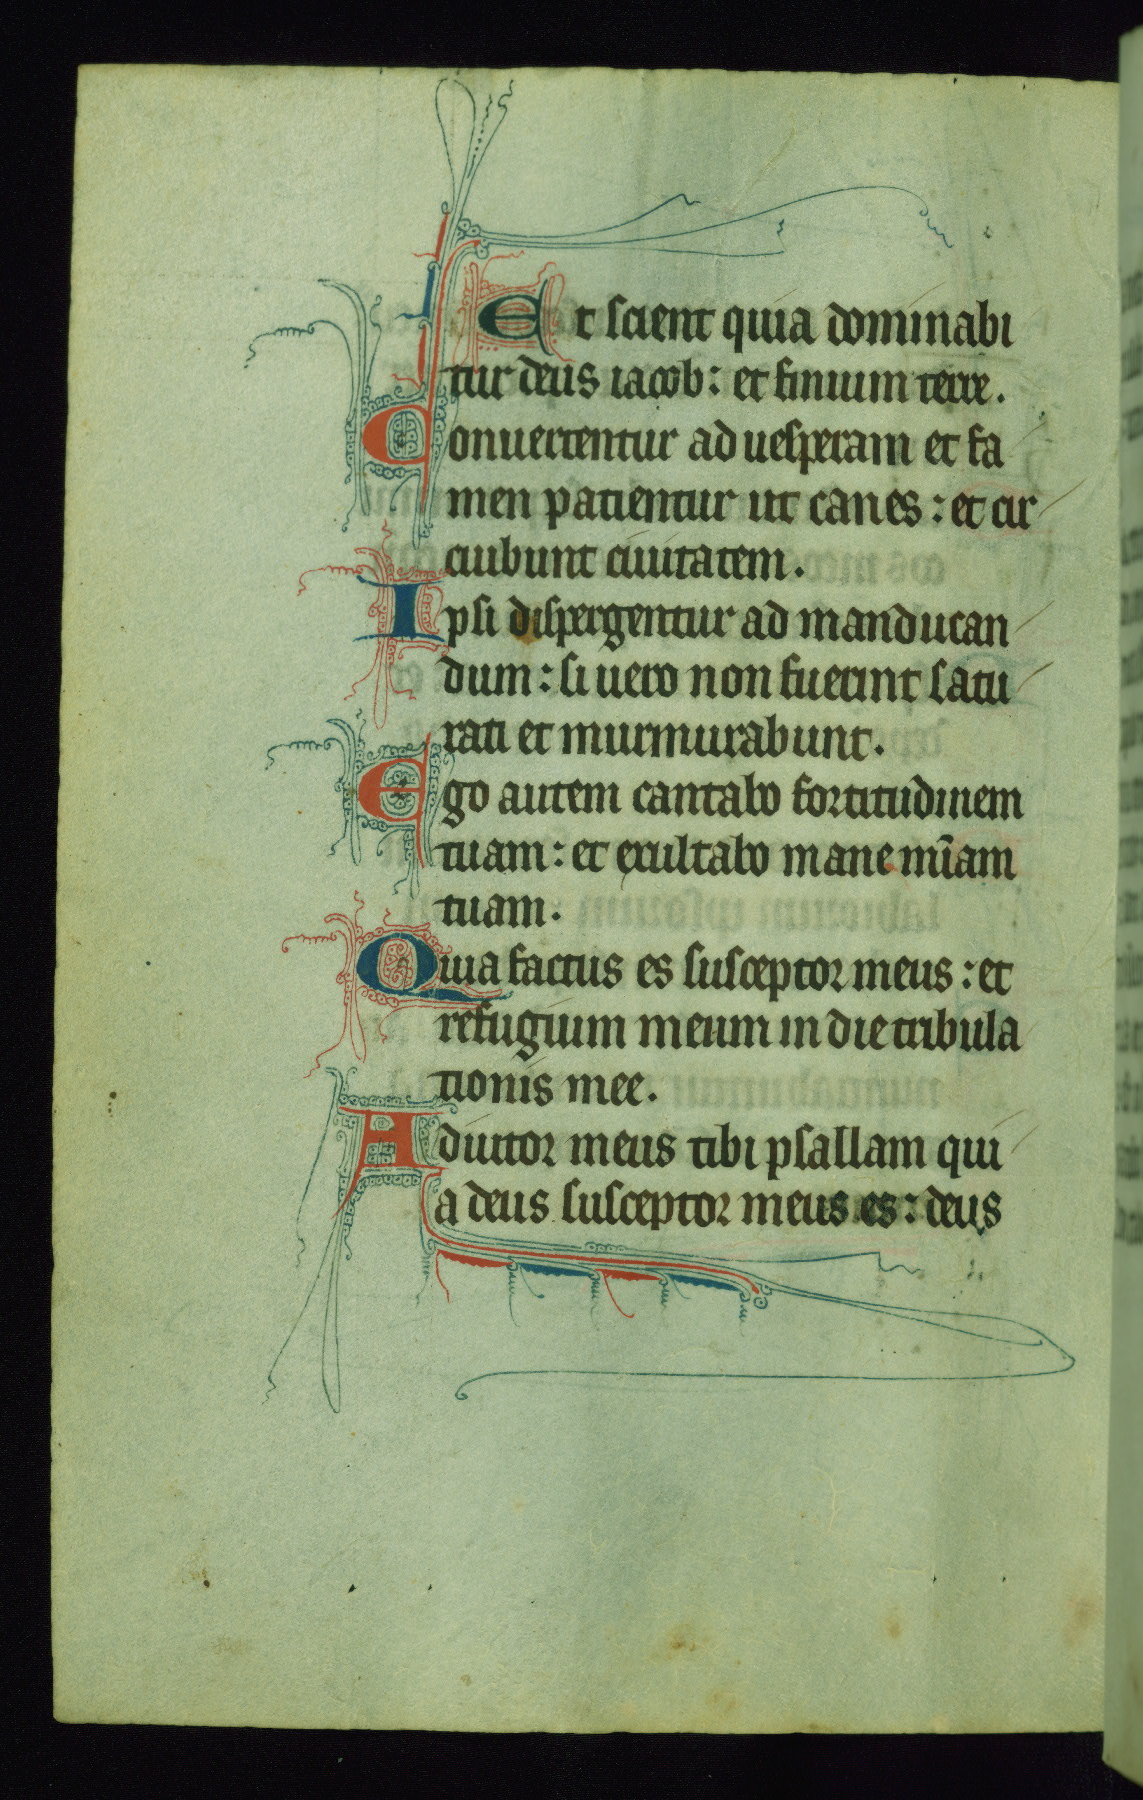 Et scient quia dominabi
tur deus iacob: et finium terre.
Conuertentur ad uesperam et fa
men patientur ut canes: et cir
cuibunt ciuitatem.
Ipsi dispergentur ad manducan
dum: si uero non fuerint satu
rati et murmurabunt.
Ego autem cantabo fortitudinem
tuam: et exultabo mane mi̅am
tuam.
Quia factus es susceptor meus: et
refugium meum in die tribula
tionis mee.
Adiutor meus tibi psallam qui
a deus susceptor meus es: deus